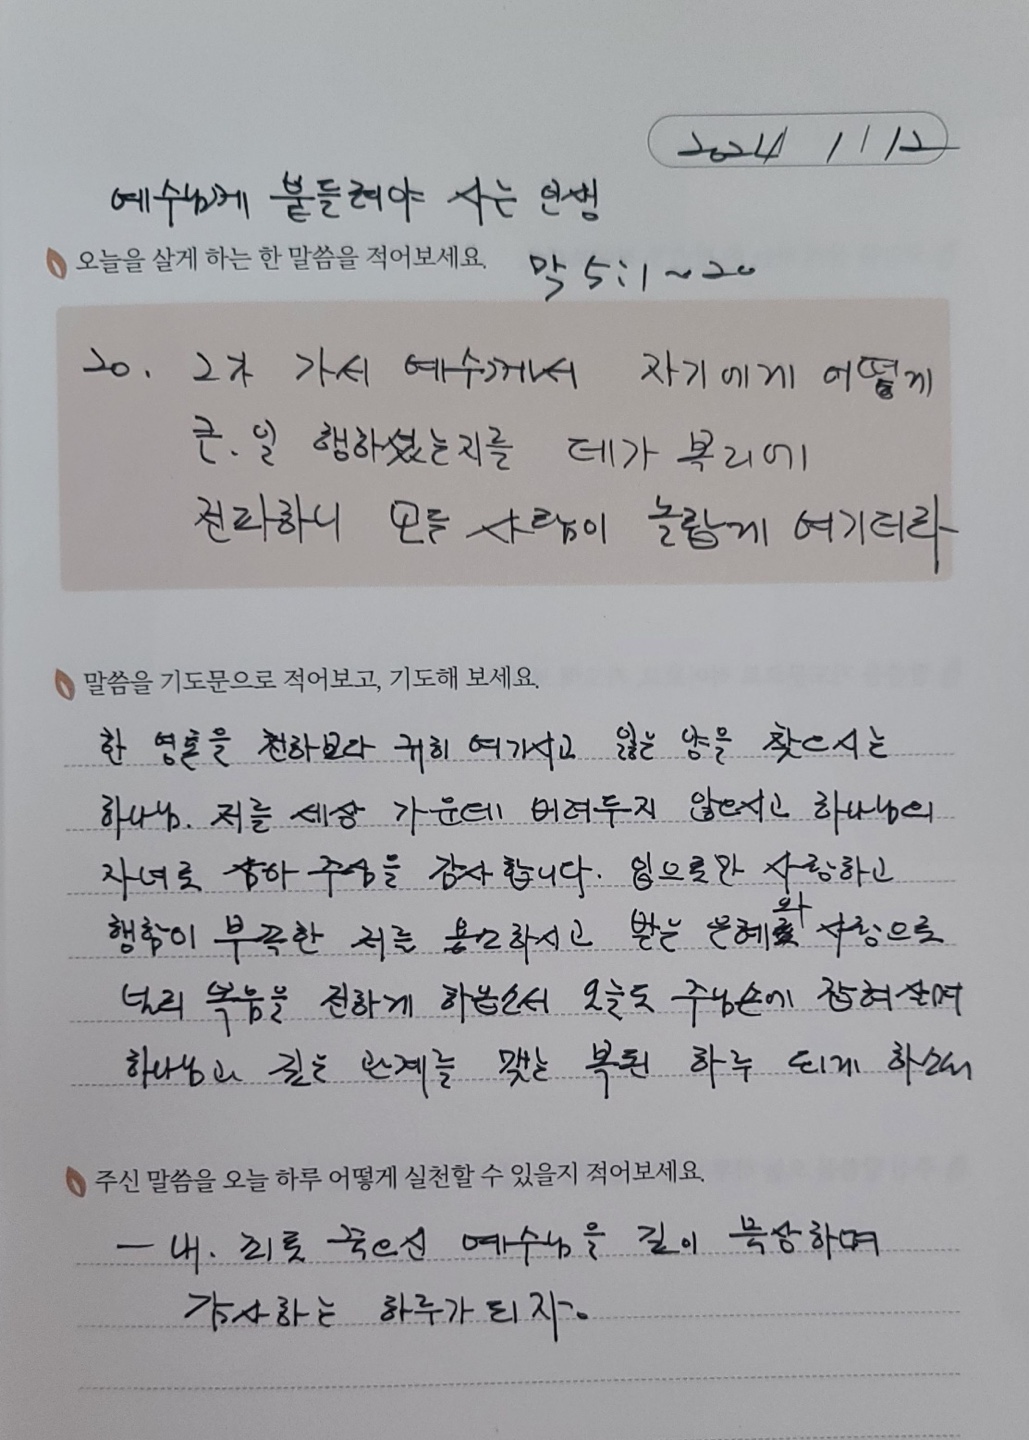 2024 11 12
예수님께 붙들려야 사는 인생
오늘을 살게 하는 한 말씀을 적어보세요.
막 5:1~20
20. 그가 가서 예수께서 자기에게 어떻게
큰. 일 행하셨는지를 데가볼리에
전파하니 모든 사람이 놀랍게 여기더라
말씀을 기도문으로 적어보고, 기도해 보세요.
한 영혼을 천하보다 귀히 여기시고 잃는 양을 찾으시는
하나님. 저를 세상 가운데 버려두지 않으시고 하나님의
자녀로 삼아 주심을 감사합니다. 입으로만 사랑하고
행함이 부족한 저를 용서하시고 받은 은혜와 사랑으로
널리 복음을 전하게 하옵소서 오늘도 주님손에 잡혀살며
하나님과 깊은 관계를 맺는 복된 하루 되게 하소서
주신 말씀을 오늘 하루 어떻게 실천할 수 있을지 적어보세요.
- 내. 죄를 예수님을 깊이 묵상하며
감사하는 하루가 되자.